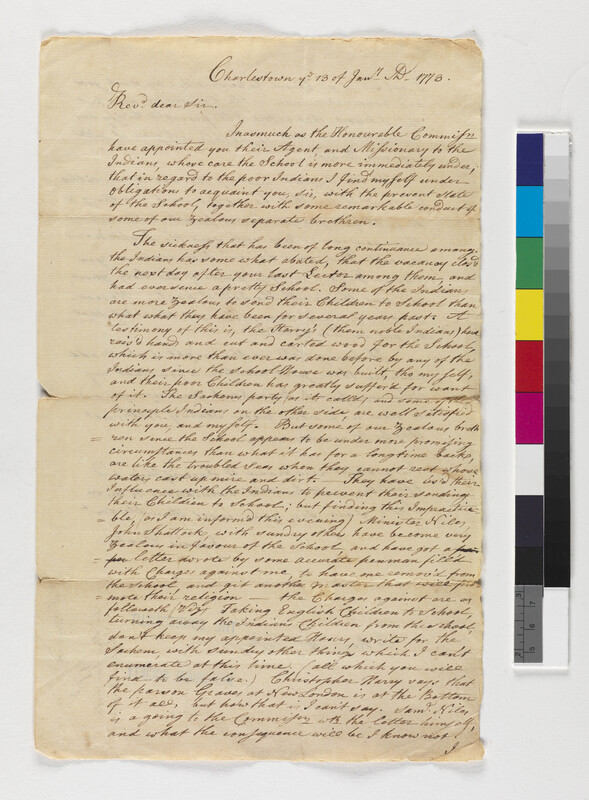 Charlestown ye 13 of Janry. AD. 1773.
Revd. dear Sir.
Inasmuch as the Honourable Commissn
have appointed you their Agent and Missionary to the
Indians, whose care the School is more immediately under;
that in regard to the poor Indians I find my self under
obligations to acquaint you, Sir, with the present State
of the School, together with some remarkable conduct of
some of our Zealous separate brethren.
The sickness that has been of long continuance among
the Indians has some what abated, that the vacancy clos'd
the next day after your last Lector among them, and
had ever since a pretty School. Some of the Indians
are more Zealous to send their Children to School than
what what they have been for several years past: A
testimony of this is, the Harry's (them noble Indians) have
rais'd hands and cut and carted wood for the School,
which is more than ever was done before by any of the
Indians since the School House was built, tho my self,
and their poor Children has greatly sufferd for want
of it. The Sachems party (as it calld) and some of the
principle Indians on the other side, are well satisfied
with you, and my self. But some of our Zealous breth
= ren since the School appears to be under more promising
circumstances than what it has for a long time back,
are like the troubled Seas when they cannot rest whose
waters cast up mire and dirt. — They have us'd their
Influence with the Indians to prevent their sending
their Children to School; but finding this Impractica
= ble, (as I am inform'd this evening) Minister Niles,
John Shattock, with sundry others have become very
Zealous in favour of the School, and have got a
= letter wrote by some accurate penman fill'd
with Charges against me, to have me remov'd from
the School and git another Master that will pro
mote their religion — the Charges against are as
followeth (Vizt) Taking English Children to School,
turning away the Indians Children from the School,
don't keep my appointed Hours, write for the
Sachem, with sundry other things which I cant
enumerate at this time. (all which you will
find to be false.) Christopher Harry says that
the parson Graves at New London is at the Bottom
of it all, but how that is I can't say. Saml. Niles
is a going to the Commissrs wth the letter himself,
and what the consequence will be I know not
I